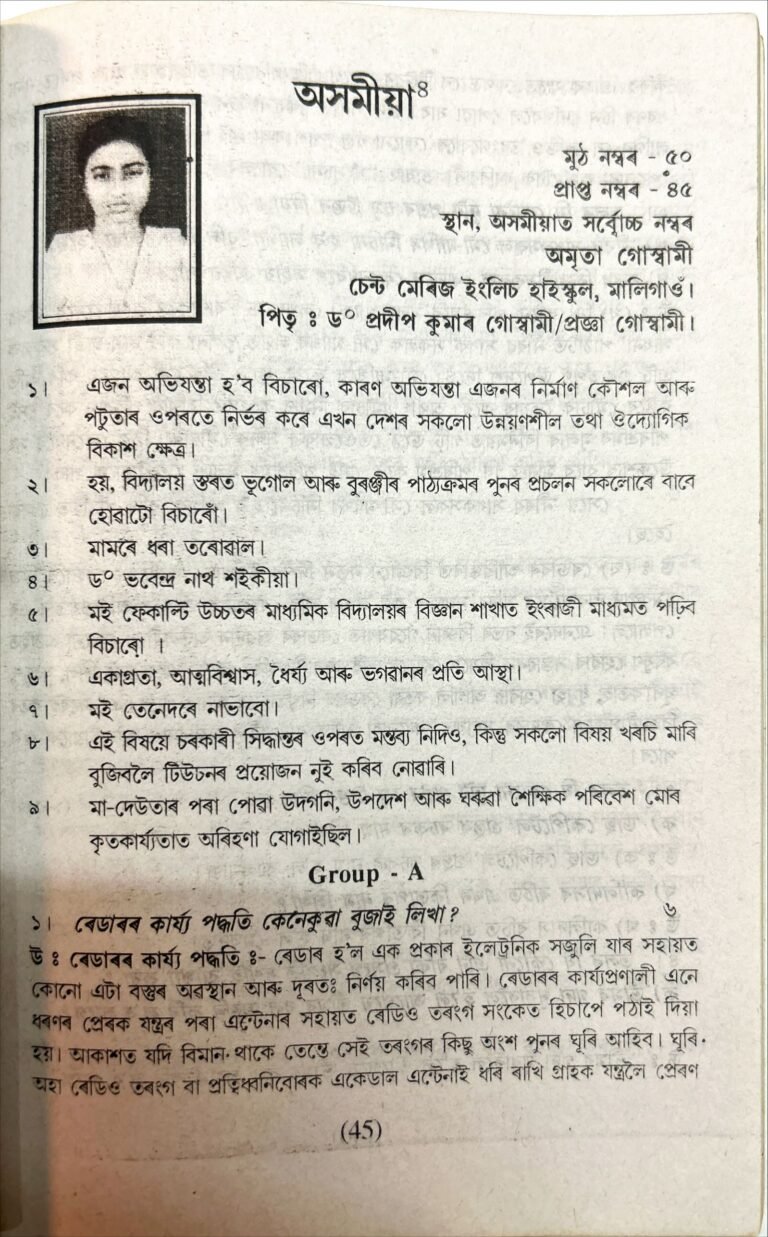 অসমীয়া⁴
মুঠ নম্বৰ - ৫০
প্ৰাপ্ত নম্বৰ - ৪৫
স্থান, অসমীয়াত সৰ্বোচ্চ নম্বৰ
অমৃতা গোস্বামী
চেন্ট মেৰিজ ইংলিচ হাইস্কুল, মালিগাওঁ।
পিতৃ ঃ ড° প্ৰদীপ কুমাৰ গোস্বামী/প্ৰজ্ঞা গোস্বামী।
১। এজন অভিযন্তা হ'ব বিচাৰো, কাৰণ অভিযন্তা এজনৰ নিৰ্মাণ কৌশল আৰু
পটুতাৰ ওপৰতে নিৰ্ভৰ কৰে এখন দেশৰ সকলো উন্নয়ণশীল তথা ঔদ্যোগিক
বিকাশ ক্ষেত্ৰ।
২। হয়, বিদ্যালয় স্তৰত ভূগোল আৰু বুৰঞ্জীৰ পাঠ্যক্ৰমৰ পুনৰ প্ৰচলন সকলোৰে বাবে
হোৱাটো বিচাৰোঁ।
৩। মামৰে ধৰা তৰোৱাল।
৪। ড° ভবেন্দ্ৰ নাথ শইকীয়া।
৫। মই ফেকাল্টি উচ্চতৰ মাধ্যমিক বিদ্যালয়ৰ বিজ্ঞান শাখাত ইংৰাজী মাধ্যমত পঢ়িব
বিচাৰো ।
৬। একাগ্ৰতা, আত্মবিশ্বাস, ধৈৰ্য্য আৰু ভগৱানৰ প্ৰতি আস্থা।
৭। মই তেনেদৰে নাভাবো।
৮। এই বিষয়ে চৰকাৰী সিদ্ধান্তৰ ওপৰত মন্তব্য নিদিও, কিন্তু সকলো বিষয় খৰচি মাৰি
বুজিবলৈ টিউচনৰ প্ৰয়োজন নুই কৰিব নোৱাৰি।
৯। মা-দেউতাৰ পৰা পোৱা উদগনি, উপদেশ আৰু ঘৰুৱা শৈক্ষিক পৰিবেশ মোৰ
কৃতকাৰ্য্যতাত অৰিহণা যোগাইছিল।
Group - A
১। ৰেডাৰৰ কাৰ্য্য পদ্ধতি কেনেকুৱা বুজাই লিখা? ৬
উ ঃ ৰেডাৰৰ কাৰ্য্য পদ্ধতি ঃ- ৰেডাৰ হ'ল এক প্ৰকাৰ ইলেট্ৰনিক সজুলি যাৰ সহায়ত
কোনো এটা বস্তুৰ অৱস্থান আৰু দূৰতঃ নিৰ্ণয় কৰিব পাৰি। ৰেডাৰৰ কাৰ্য্যপ্ৰণালী এনে
ধৰণৰ প্ৰেৰক যন্ত্ৰৰ পৰা এন্টেনাৰ সহায়ত ৰেডিও তৰংগ সংকেত হিচাপে পঠাই দিয়া
হয়। আকাশত যদি বিমান থাকে তেন্তে সেই তৰংগৰ কিছু অংশ পুনৰ ঘূৰি আহিব। ঘূৰি
অহা ৰেডিও তৰংগ বা প্ৰতিধ্বনিবোৰক একেডাল এন্টেনাই ধৰি ৰাখি গ্ৰাহক যন্ত্ৰলৈ প্ৰেৰণ
(45)